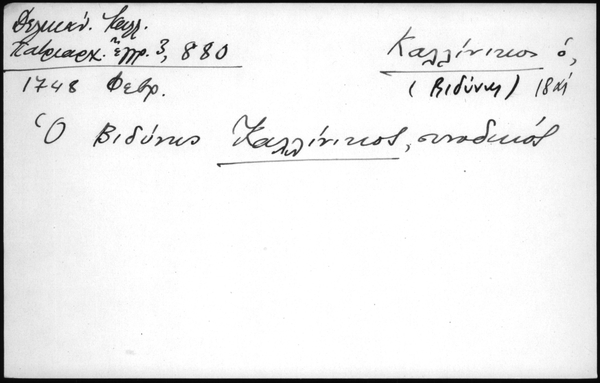 Δελικάν. Καλλ.
Πατριαρχ. ἔγγρ. 3, 880
1748 Φεβρ.
Καλλίνικος ὁ,
(Βιδύνης) 18αἰ
Ὁ Βιδύνης Καλλίνικος, συνοδικός